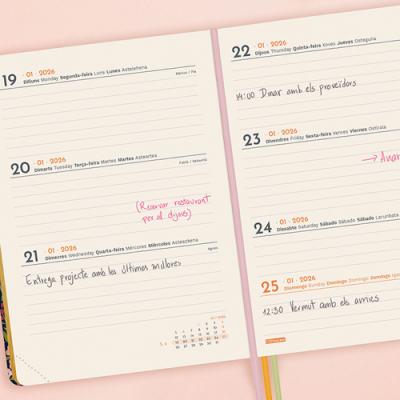 19 · 01 · 2026
Dilluns Monday Segunda-feira Luns Lunes Astelehena
20 · 01 · 2026
Dimarts Tuesday Terça-feira Martes Martes Asteartea
(Reservar restaurant
per al dijous)
21 · 01 · 2026
Dimecres Wednesday Quarta-feira Mércores Miércoles Asteazkena
Agnès
Entrega projecte amb les últimes millores
22 · 01 · 2026
Dijous Thursday Quinta-feira Xoves Jueves Osteguna
14:00 Dinar amb els proveïdors
23 · 01 · 2026
Divendres Friday Sexta-feira Venres Viernes Ostirala
→ Anar
24 · 01 · 2026
Dissabte Saturday Sábado Sábado Sábado Larunbata
25 · 01 · 2026
Diumenge Sunday Domingo Domingo Domingo
12:30 Vermut amb els avries